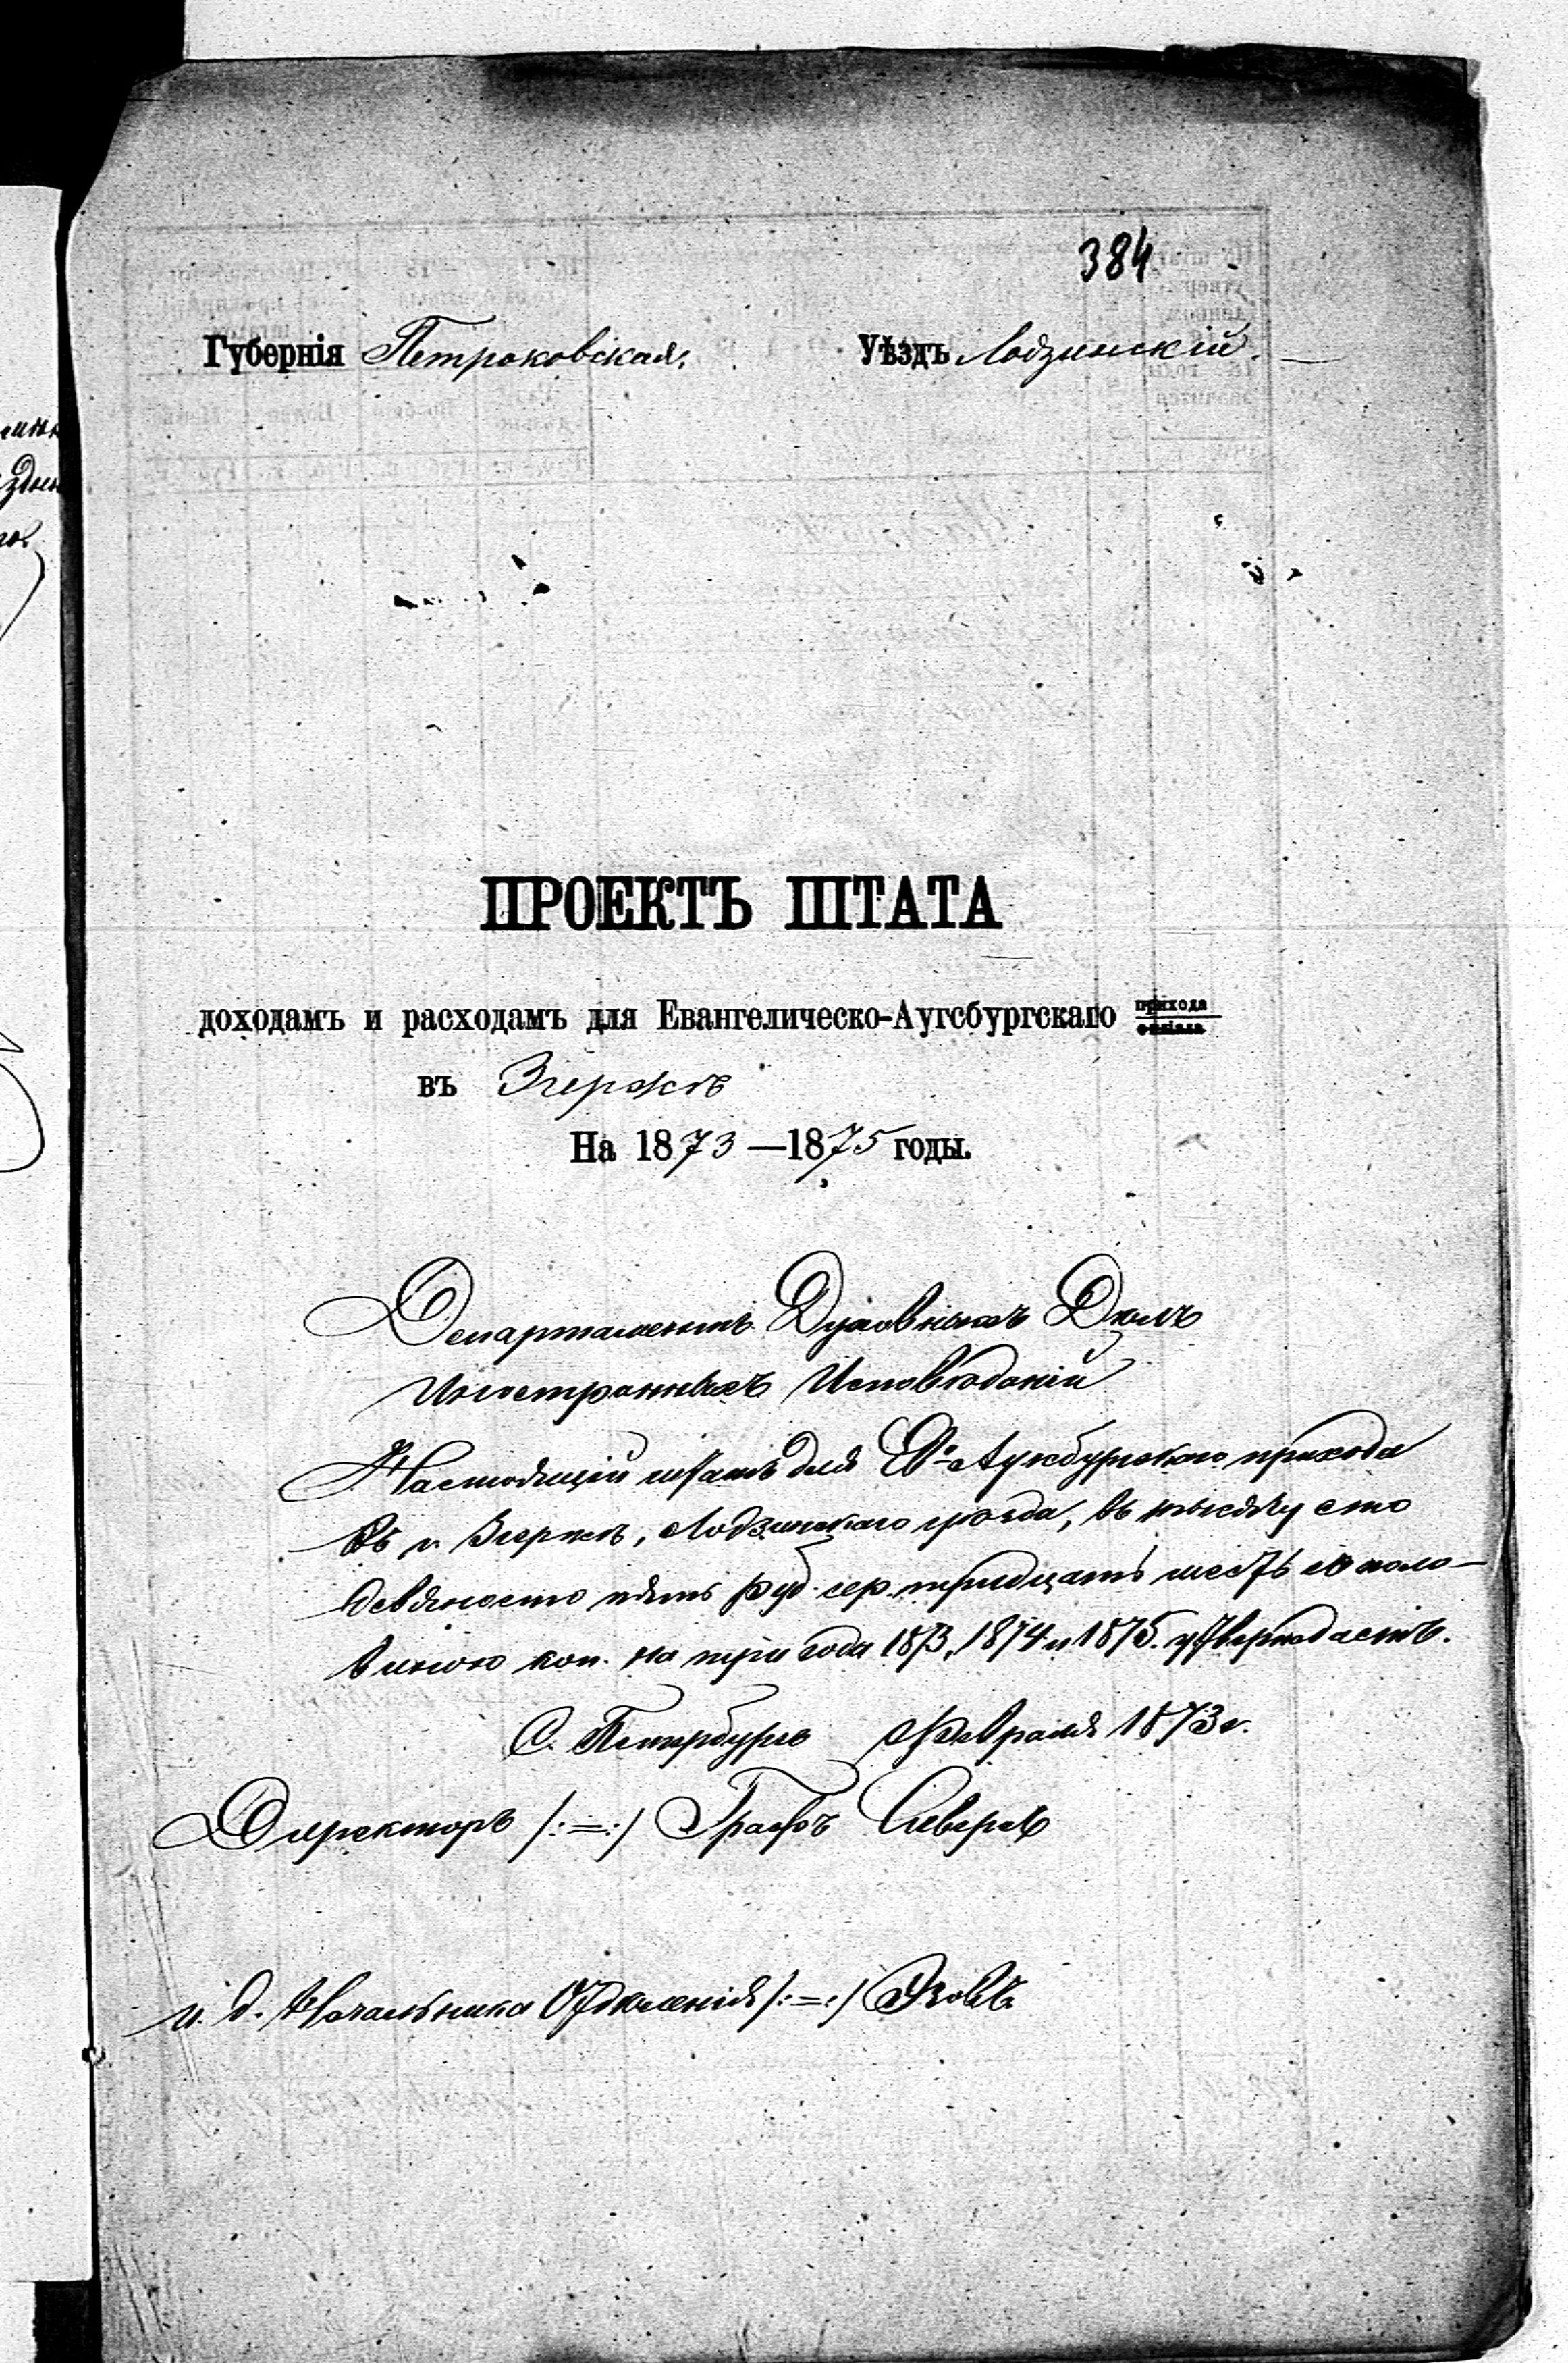 384
Губернія Петроковская. Уѣздъ Лодзинскій.
ПРОЕКТЪ ШТАТА
доходамъ и расходамъ для Евангелическо-Аугсбургскаго прихода
филіала
въ Згержѣ
На 1873—1875 годы.
Департаментъ Духовныхъ Дѣлъ
Иностранныхъ Исповѣданій
Настоящій штатъ для Ев.-Аугсбургскаго прихода
въ г. Згержѣ, Лодзинскаго уѣзда, въ тысячу сто
девяносто пять руб. сер. тридцать шесть съ поло-
виною коп. на три года 1873, 1874 и 1875. утверждаетъ.
С. Петербургъ Февраля 1873 г.
Директоръ /:=:/ Графъ Сиверсъ
и. д. Начальника Отдѣленія /:=:/